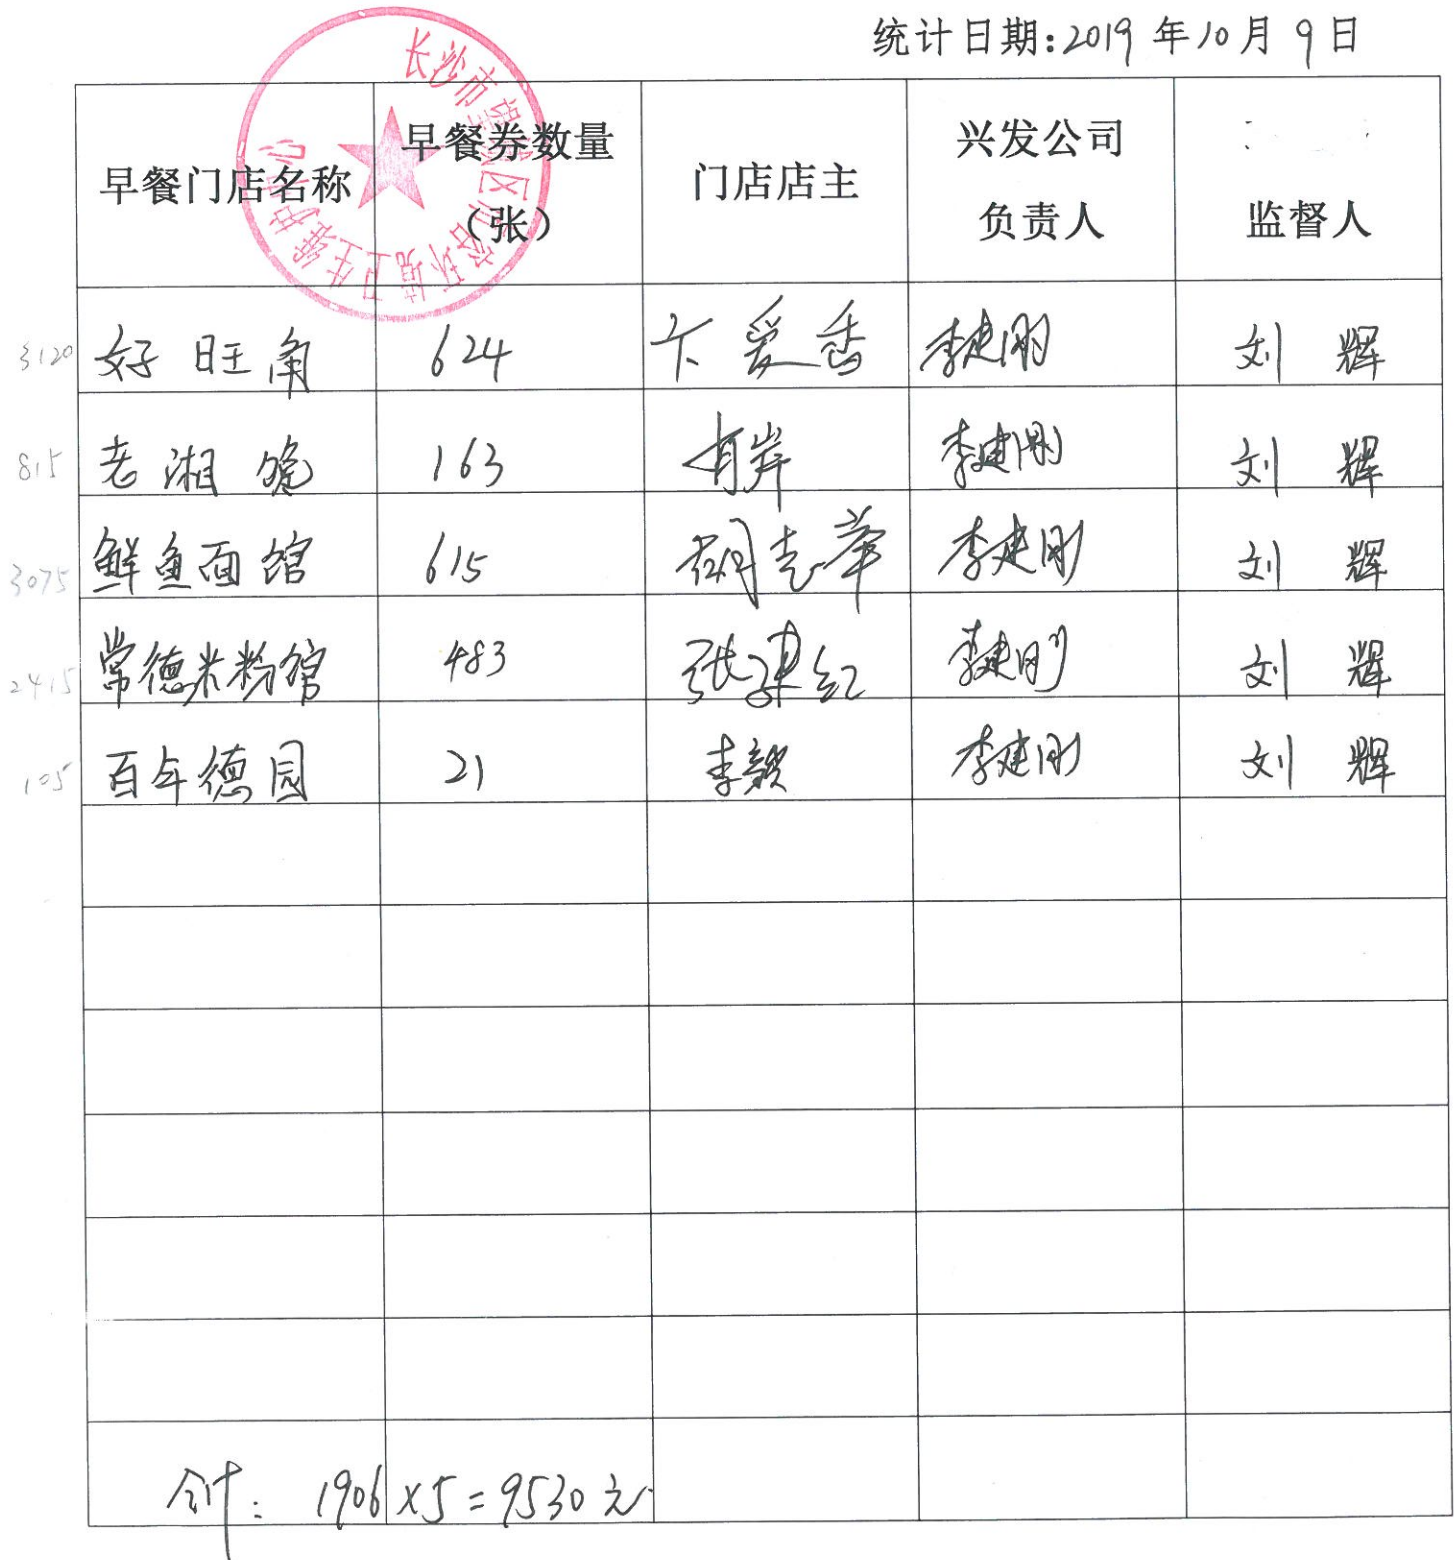 统计日期:2019年10月9日
长沙市望城区市容环境卫生维护中心
早餐门店名称 早餐券数量（张） 门店店主 兴发公司负责人 监督人
3120 好旺角 624 卞爱香 李建刚 刘辉
815 老湘碗 163 李建刚 刘辉
3075 鲜鱼面馆 615 李建刚 刘辉
2415 常德米粉馆 483 李建刚 刘辉
105 百年德园 21 李毅 李建刚 刘辉
合计: 1906×5=9530元